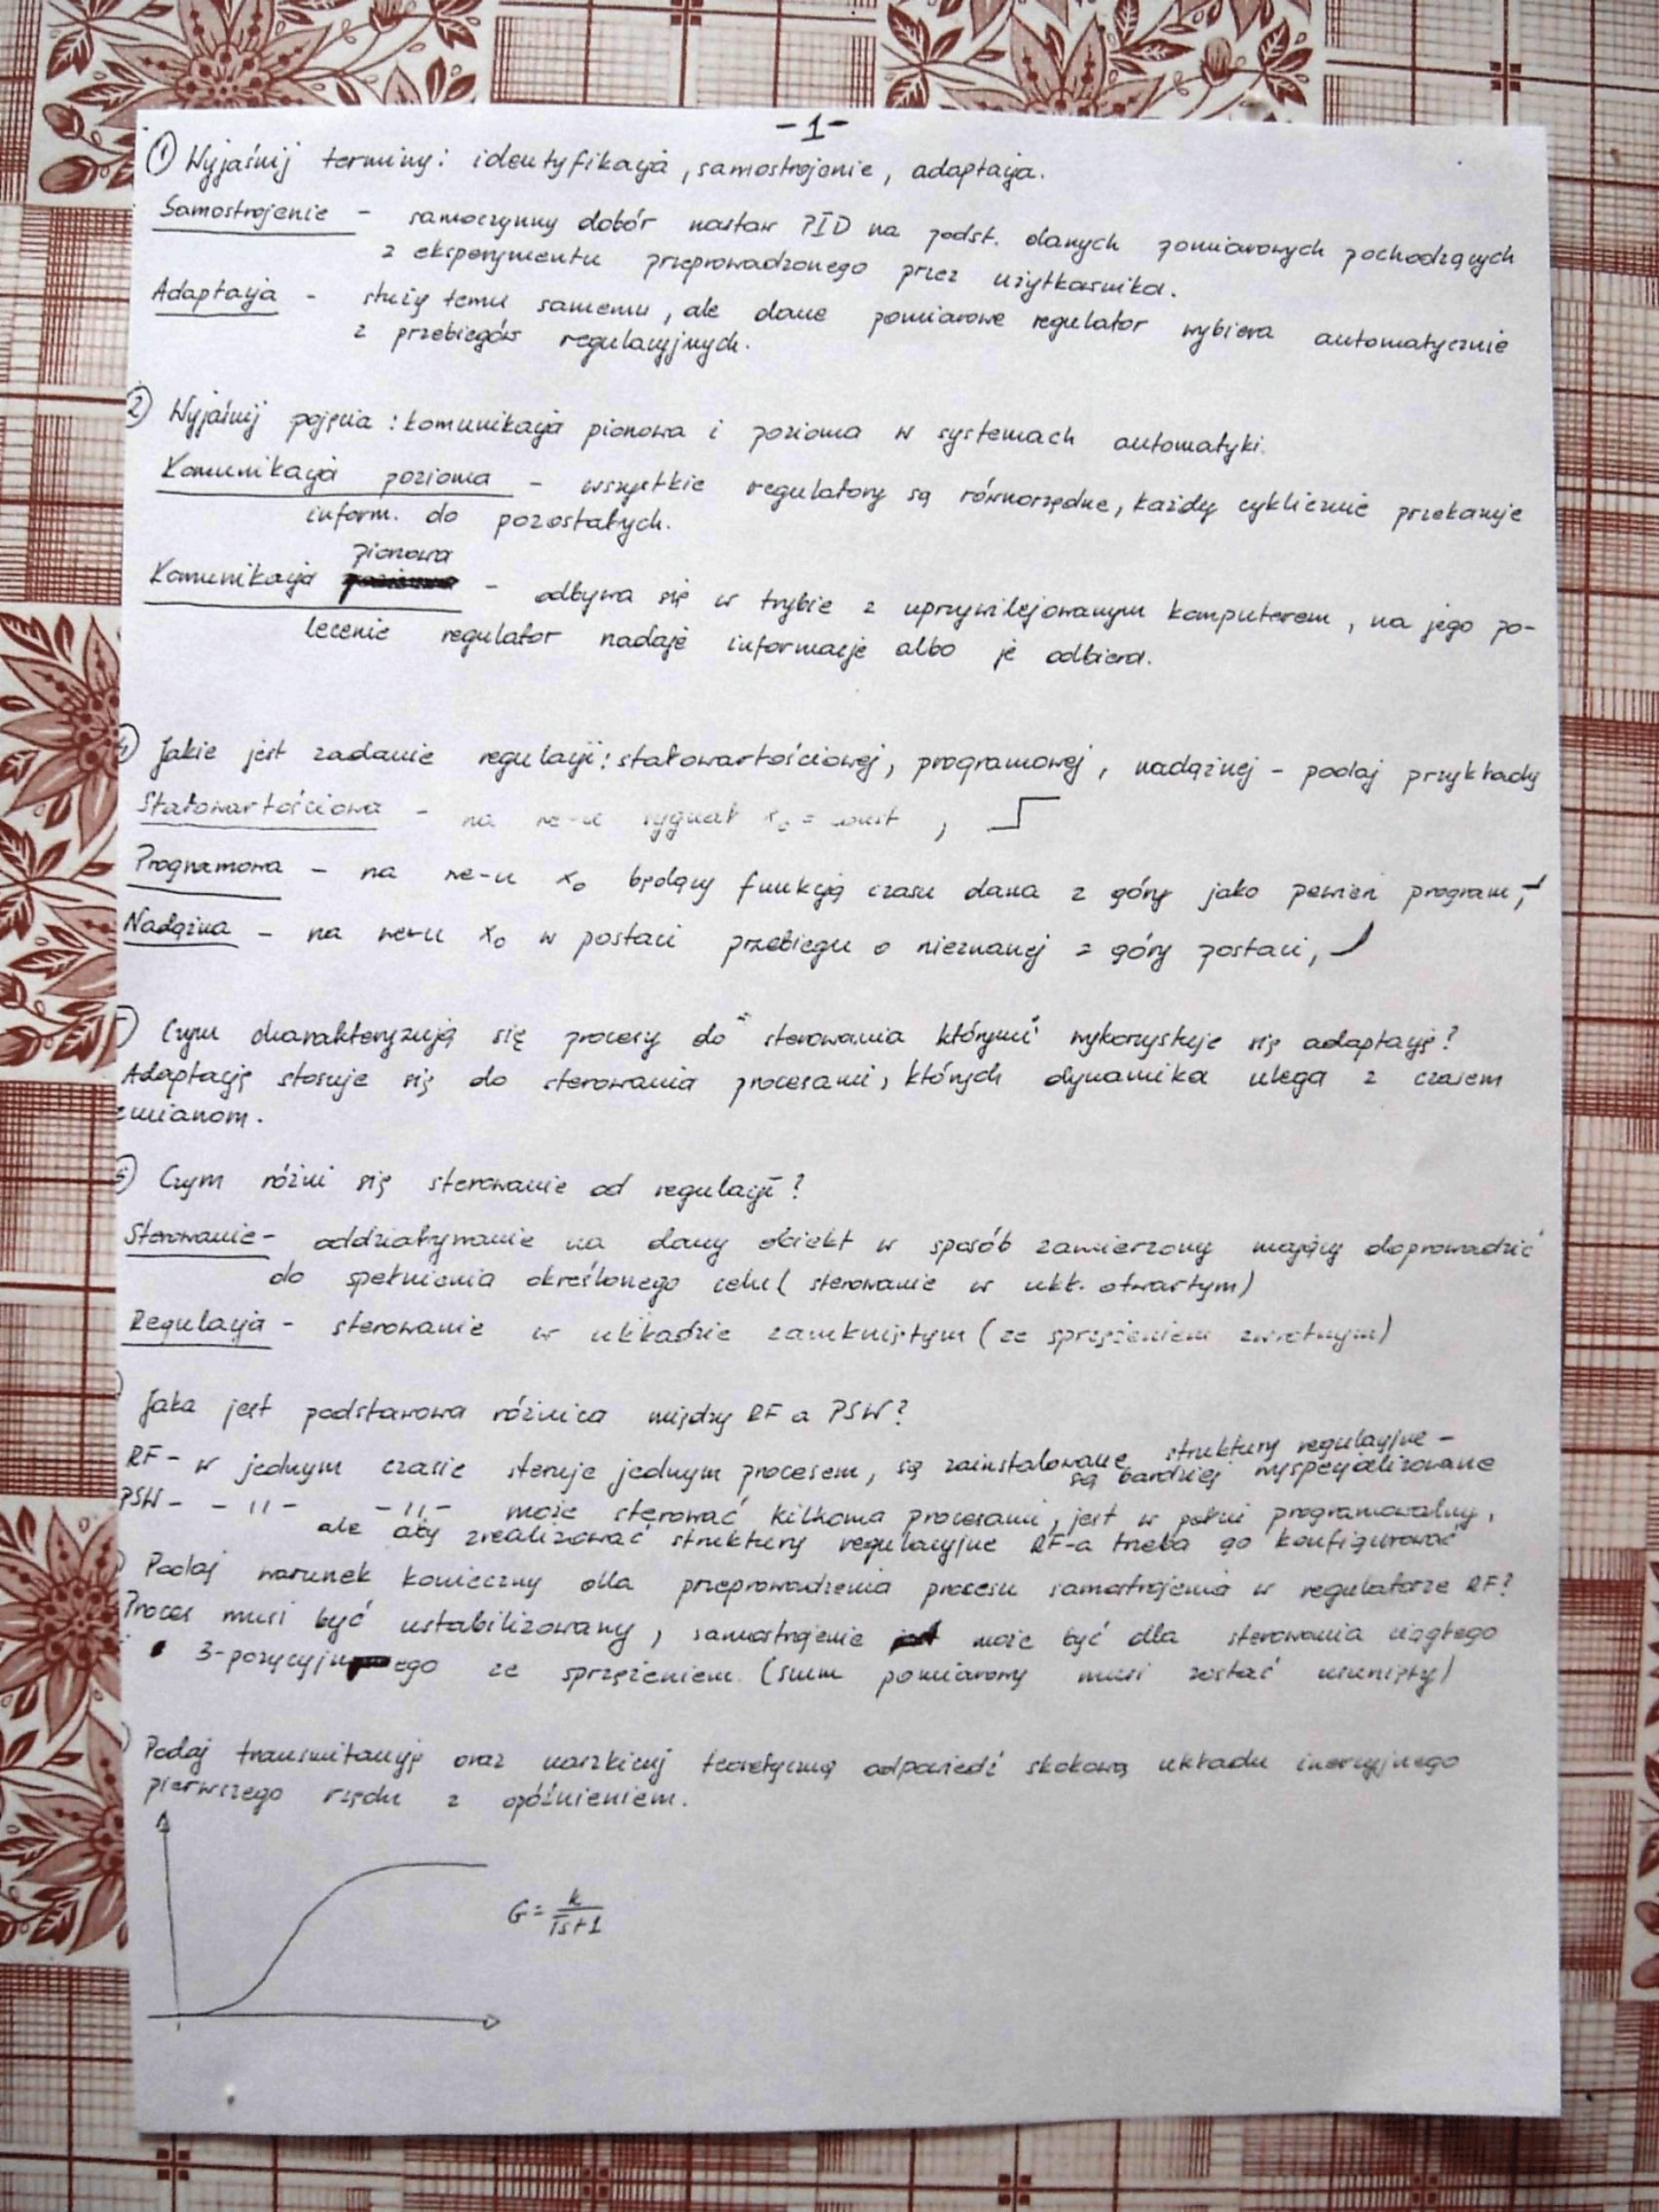 -1-
① Wyjaśnij terminy: identyfikacja, samostrojenie, adaptacja.
Samostrojenie - samoczynny dobór nastaw PID na podst. danych pomiarowych pochodzących
z eksperymentu przeprowadzonego przez użytkownika.
Adaptacja - służy temu samemu, ale dane pomiarowe regulator wybiera automatycznie
z przebiegów regulacyjnych.
② Wyjaśnij pojęcia: komunikacja pionowa i pozioma w systemach automatyki.
Komunikacja pozioma - wszystkie regulatory są równorzędne, każdy cyklicznie przekazuje
inform. do pozostałych.
pionowa
Komunikacja - odbywa się w trybie z uprzywilejowanym komputerem, na jego po-
lecenie regulator nadaje informacje albo je odbiera.
Jakie jest zadanie regulacji: stałowartościowej, programowej, nadążnej - podaj przykłady
Stałowartościowa - na we-u sygnał x₀ = const,
Programowa - na we-u x₀ będący funkcją czasu dana z góry jako pewien program,
Nadążna - na we-u x₀ w postaci przebiegu o nieznanej z góry postaci,
Czym charakteryzują się procesy do "sterowania którymi" wykorzystuje się adaptację?
Adaptację stosuje się do sterowania procesami, których dynamika ulega z czasem
zmianom.
Czym różni się sterowanie od regulacji?
Sterowanie - oddziaływanie na dany obiekt w sposób zamierzony mający doprowadzić
do spełnienia określonego celu (sterowanie w ukł. otwartym)
Regulacja - sterowanie w układzie zamkniętym (ze sprzężeniem zwrotnym)
Jaka jest podstawowa różnica między RF a PSW?
RF - w jednym czasie steruje jednym procesem, są zainstalowane struktury regulacyjne -
są bardziej wyspecjalizowane
PSW - -11- -11- może sterować kilkoma procesami, jest w pełni programowalny,
ale aby zrealizować struktury regulacyjne RF-a trzeba go konfigurować
Podaj warunek konieczny dla przeprowadzenia procesu samostrojenia w regulatorze RF?
Proces musi być ustabilizowany, samostrojenie może być dla sterowania ciągłego
i 3-pozycyjnego ze sprzężeniem. (szum pomiarowy musi zostać usunięty)
Podaj transmitancję oraz naszkicuj teoretyczną odpowiedź skokową układu inercyjnego
pierwszego rzędu z opóźnieniem.
G = k/Ts+1